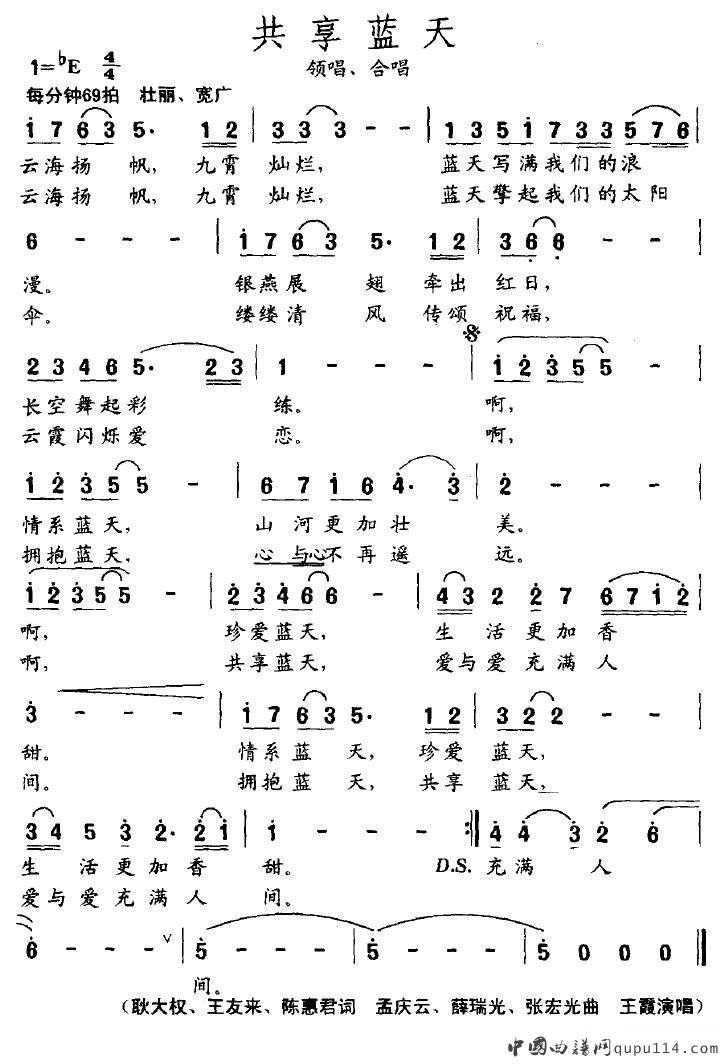 共享蓝天
领唱、合唱
1=♭E 4/4
每分钟69拍 壮丽、宽广
1 7 6 3 5· 1 2 | 3 3 3 - - | 1 3 5 1 7 3 3 5 7 6
云海扬帆, 九霄灿烂, 蓝天写满我们的浪
云海扬帆, 九霄灿烂, 蓝天擎起我们的太阳
6 - - - | 1 7 6 3 5· 1 2 | 3 6 6 - -
漫。 银燕展翅 牵出红日,
伞。 缕缕清风 传颂祝福,
2 3 4 6 5· 2 3 | 1 - - - | 1 2 3 5 5 - -
长空舞起彩 练。 啊,
云霞闪烁爱 恋。 啊,
1 2 3 5 5 - | 6 7 1 6 4· 3 | 2 - - -
情系蓝天, 山河更加壮 美。
拥抱蓝天, 心与心不再遥 远。
1 2 3 5 5 - - | 2 3 4 6 6 - - | 4 3 2 2 7 6 7 1 2
啊, 珍爱蓝天, 生活更加香
啊, 共享蓝天, 爱与爱充满人
3 - - - | 1 7 6 3 5· 1 2 | 3 2 2 - -
甜。 情系蓝天, 珍爱蓝天,
间。 拥抱蓝天, 共享蓝天,
3 4 5 3 2· 2 1 | 1 - - - :| 4 4 3 2 6
生活更加香 甜。 D.S. 充满人
爱与爱充满人 间。
6 - - - ∨ | 5 - - - | 5 - - - | 5 0 0 0 ‖
间。
(耿大权、王友来、陈惠君词 孟庆云、薛瑞光、张宏光曲 王霞演唱)
中國曲譜网qupu114.com